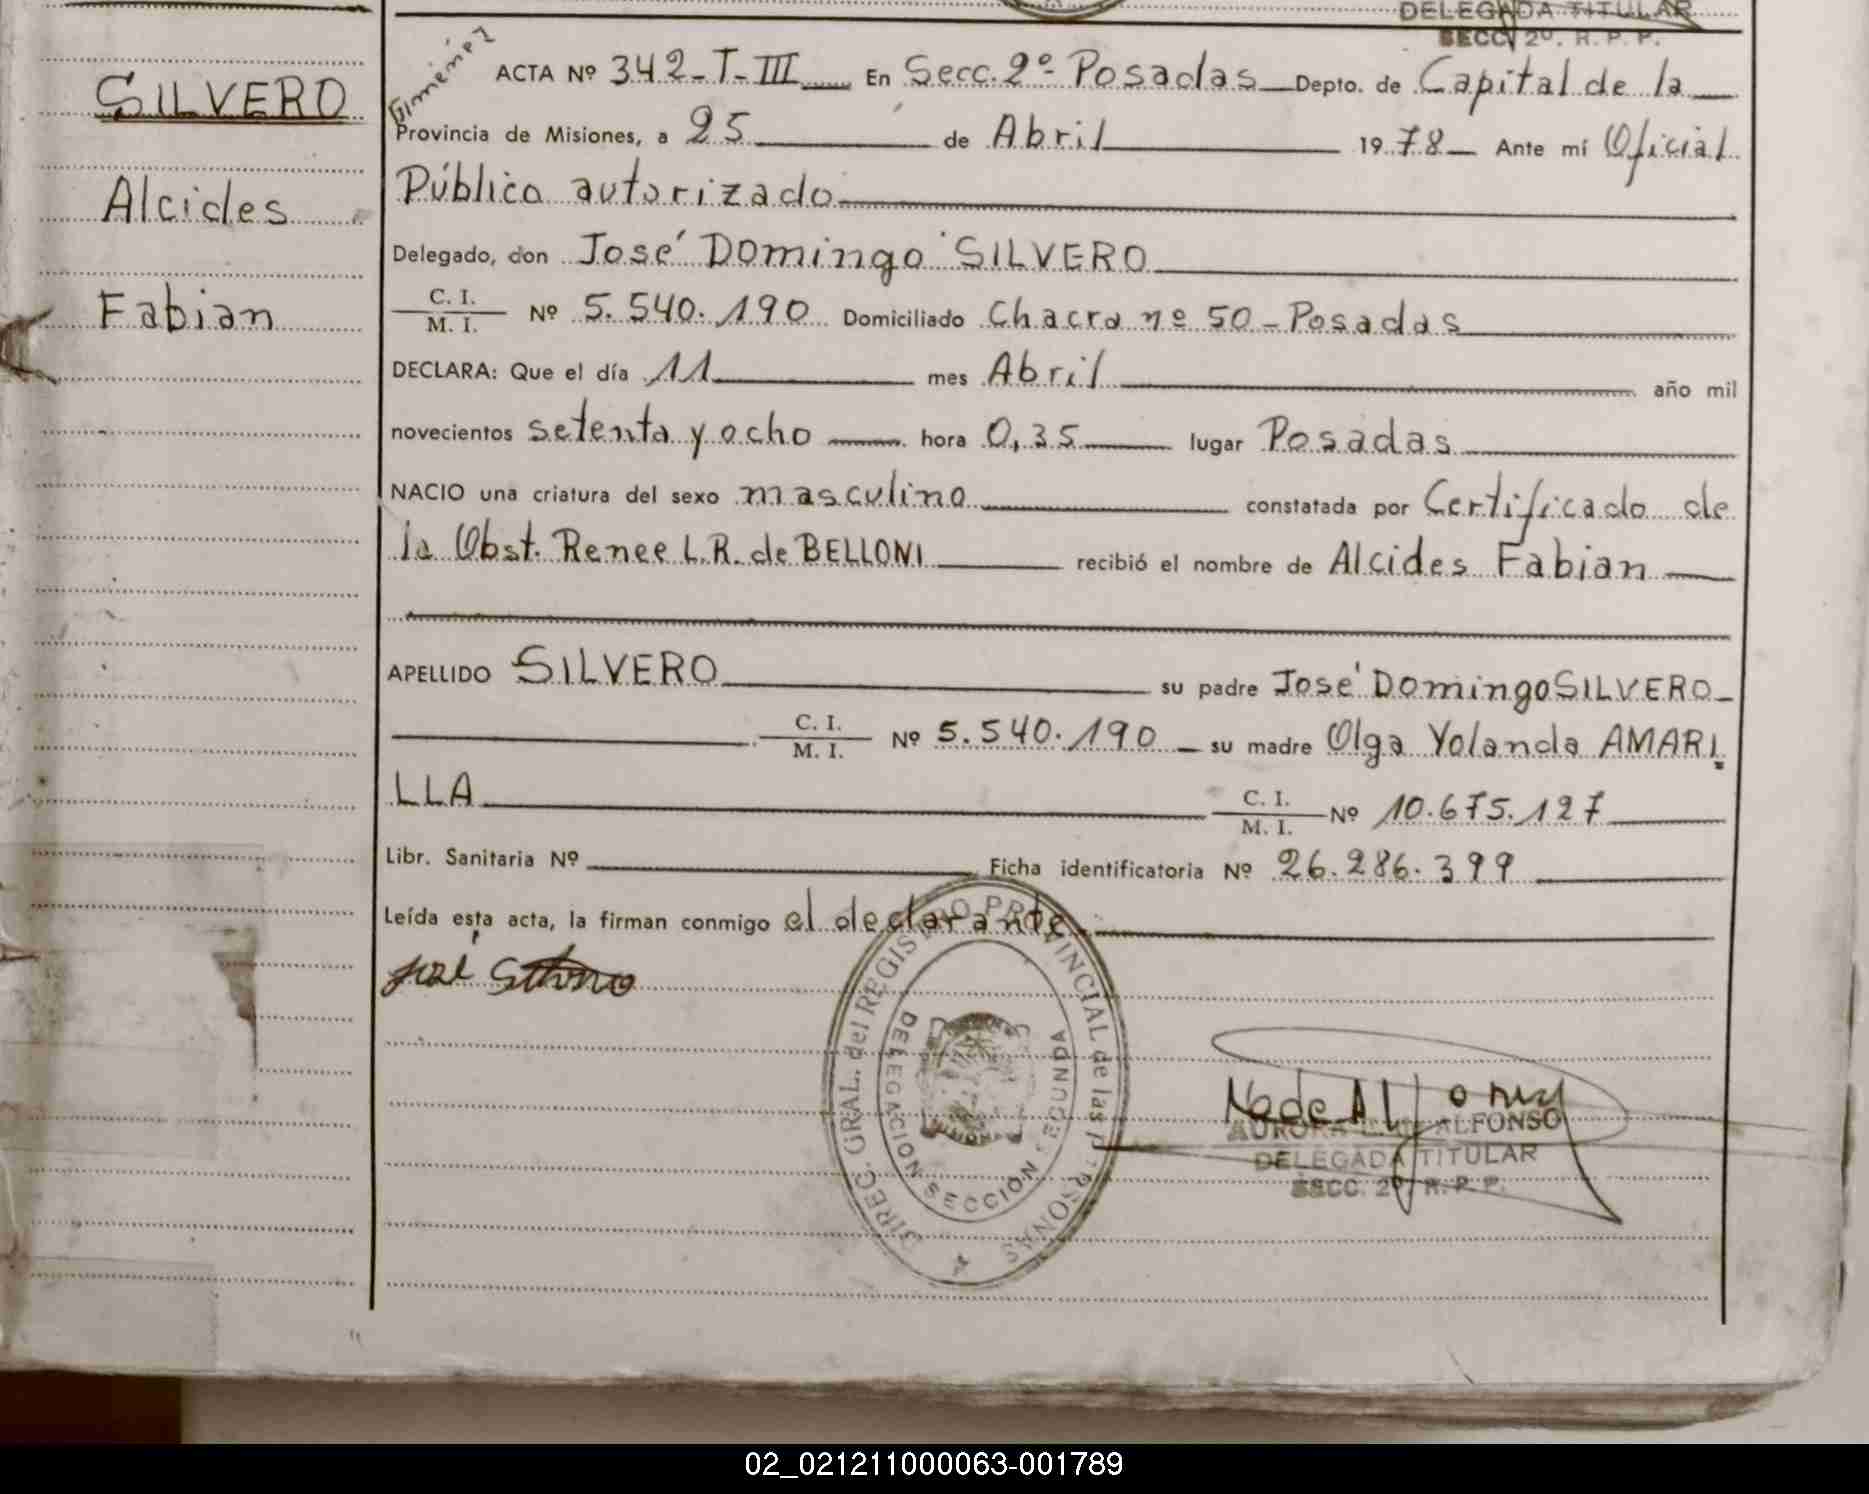 DELEGADA TITULAR
SECC. 2º. R. P. P.
SILVERO
Alcides
Fabian
Giménez
ACTA Nº 342-T-III En Secc. 2º- Posadas Depto. de Capital de la
Provincia de Misiones, a 25 de Abril 1978 Ante mí Oficial
Público autorizado
Delegado, don José Domingo SILVERO
C. I. / M. I. Nº 5.540.190 Domiciliado Chacra nº 50 - Posadas
DECLARA: Que el día 11 mes Abril año mil
novecientos setenta y ocho hora 0,35 lugar Posadas
NACIO una criatura del sexo masculino constatada por Certificado de
la Obst. Renee L.R. de BELLONI recibió el nombre de Alcides Fabian
APELLIDO SILVERO su padre José Domingo SILVERO
C. I. / M. I. Nº 5.540.190 su madre Olga Yolanda AMARI
LLA C. I. / M. I. Nº 10.675.127
Libr. Sanitaria Nº Ficha identificatoria Nº 26.286.399
Leída esta acta, la firman conmigo el declarante.
José Silvero
DIREC. GRAL. del REGISTRO PROVINCIAL de las PERSONAS
DELEGACION SECCION SEGUNDA
AURORA ALFONSO
DELEGADA TITULAR
SECC. 2º. R. P. P.
02_021211000063-001789